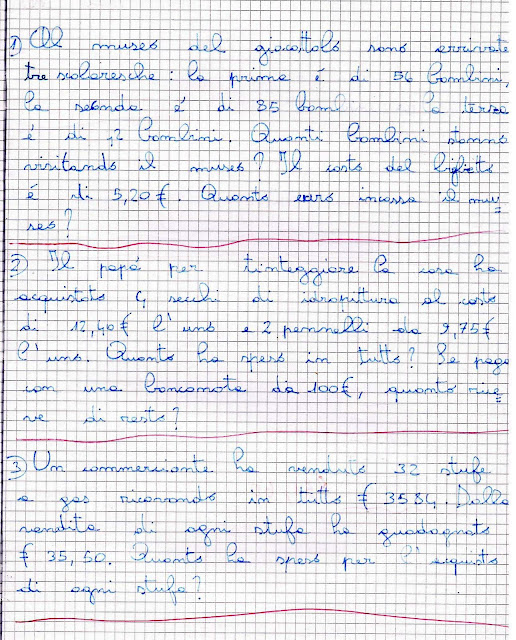 1) Al museo del giocattolo sono arrivate
tre scolaresche: la prima é di 56 bambini,
la seconda é di 85 bam la terza
é di 12 bambini. Quanti bambini stanno
visitando il museo? Il costo del biglieto
é di 5,20 €. Quanto euro incassa il mu
seo?
2) Il papá per tinteggiare la casa ha
acquistato 4 secchi di idropittura al costo
di 12,40 € l'uno e 2 pennelli da 9,75 €
l'uno. Quanto ha speso in tutto? Se paga
con una banconota da 100 €, quanto rice
ve di resto?
3) Un commerciante ha venduto 32 stufe
a gas ricavando in tutto € 3584. Dalla
vendita di ogni stufa ha guadagnato
€ 35,50. Quanto ha speso per l'acquisto
di ogni stufa?